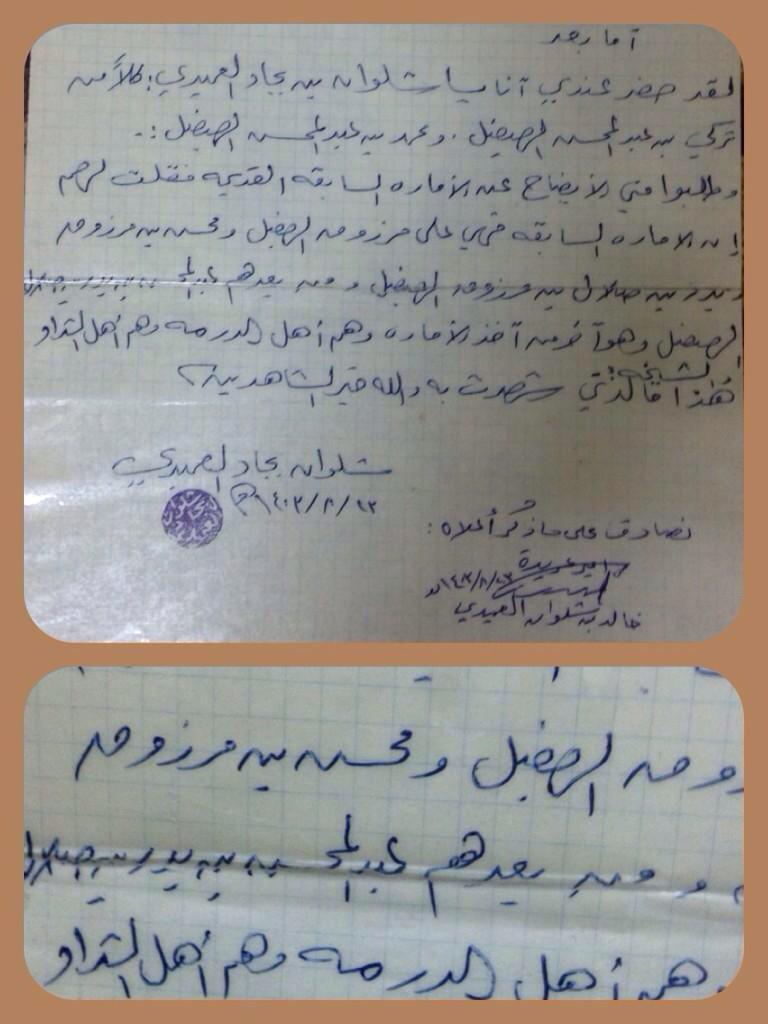 أما بعد
لقد حضر عندي أنا يا شلوان بن بجاد العميدي: كلاً من
تركي بن عبد المحسن الهيضل. ومحمد بن عبد المحسن الهيضل:.
وطلبوا مني الإيضاح عن الأماره السابقه القديمه فقلت لهم
إن الاماره السابقه فهي على مرزوق الهيضل ومحسن بن مرزوق
وبدر بن ضلال بن مرزوق الهيضل ومن بعدهم عبد المحسن بن بدر بن
الهيضل وهو آخر من أخذ الأماره وهم أهل الدرمه وهم أهل الشداد
الشيخه
هذا ما لذي شهدت به والله خير الشاهدين
شلوان بجاد العميدي
١٤٠٣/٨/٢٣هـ
نصادق على ما ذكر أعلاه:
خالد بن شلوان العميدي
وق الهيضل ومحسن بن مرزوق
ومن بعدهم عبد المحسن بن بدر بن
وهم أهل الدرمه وهم أهل الشداد